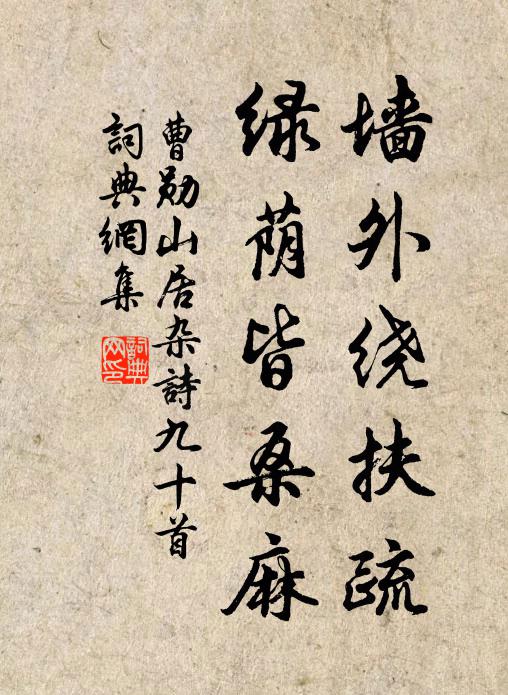 墙外绕扶疏
绿荫皆桑麻
曹勋山居杂詩九十首
詞典網集
詞典
网印